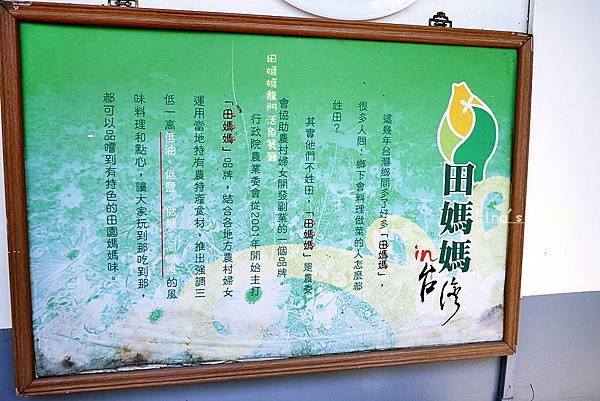 田媽媽
in台灣
這幾年台灣鄉間多了好多「田媽媽」，
很多人問：鄉下會料理做菜的人怎麼都
姓田？
其實他們不姓田，「田媽媽」是農委
會協助農村婦女開發副業的一個品牌。
行政院農業委員會從2001年開始主打
「田媽媽」品牌，結合各地方農村婦女
運用當地特有農特產食材，推出強調三
低一高低油、低鹽、低
的風
味料理和點心，讓大家玩到那吃到那，
都可以品嚐到有特色的田園媽媽味。
田媽媽龍門活魚餐廳
Lina's